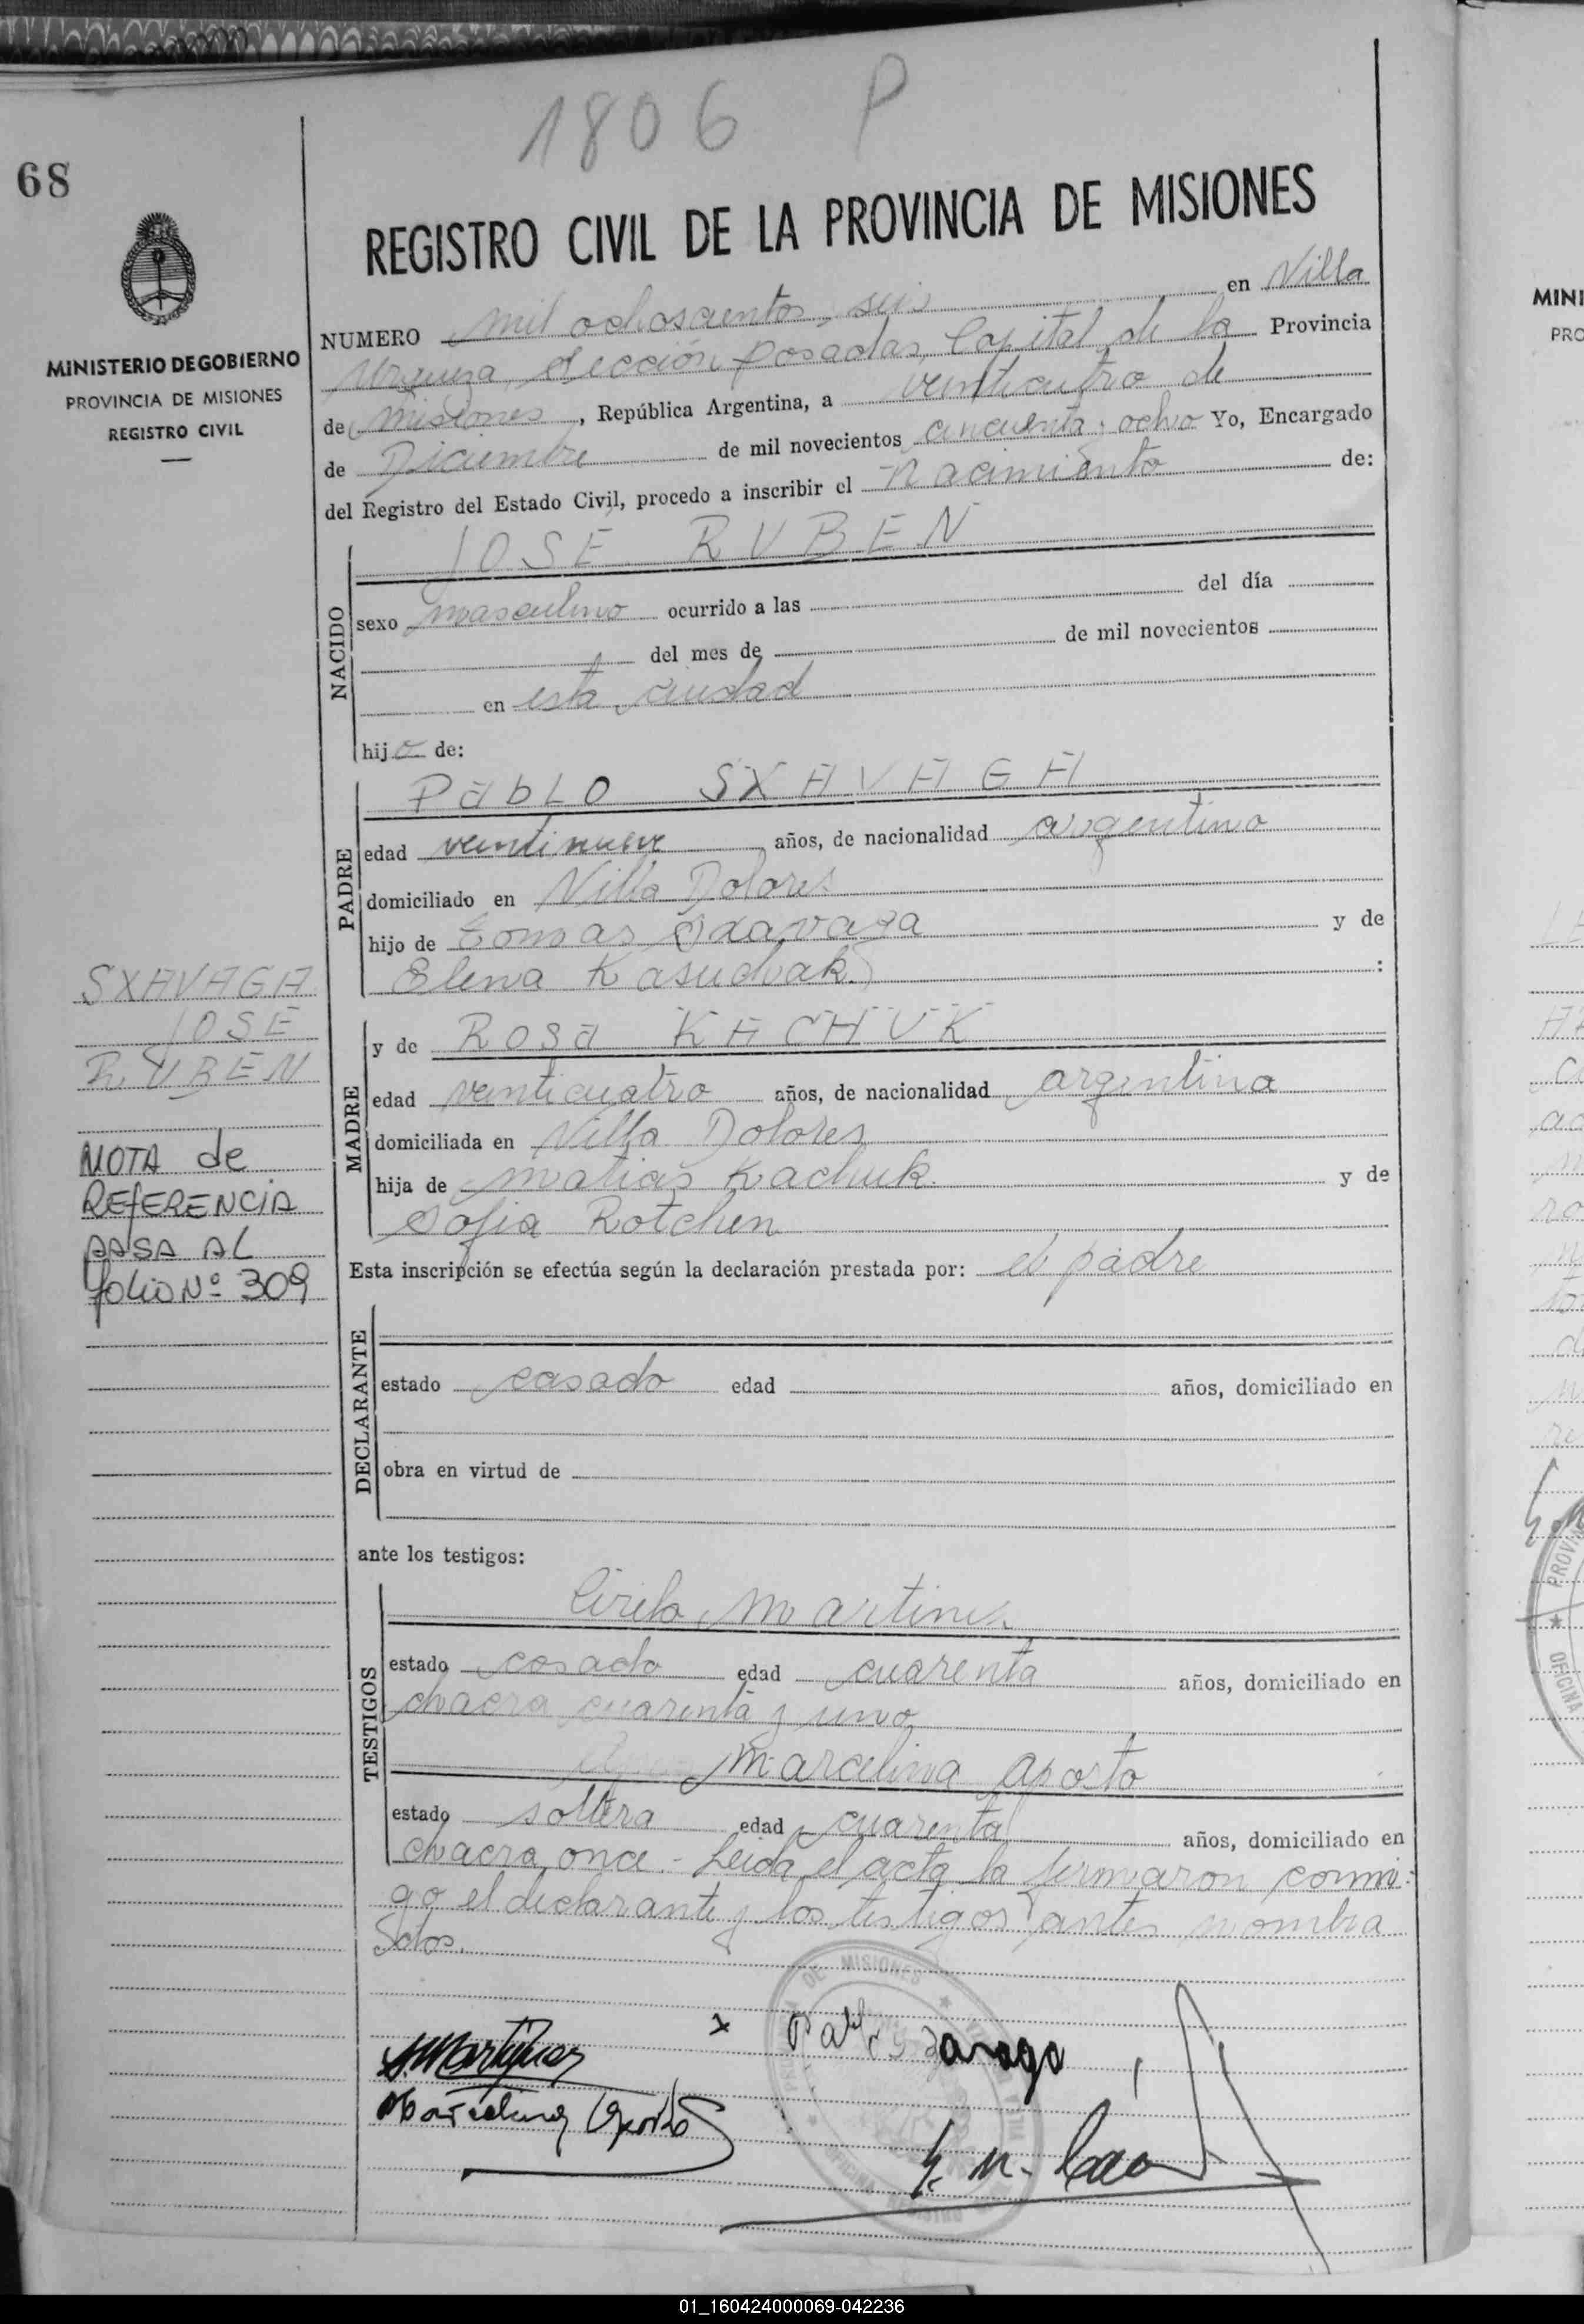 1806 P
68
REGISTRO CIVIL DE LA PROVINCIA DE MISIONES
MINISTERIO DE GOBIERNO
PROVINCIA DE MISIONES
REGISTRO CIVIL
NUMERO mil ochoscientos seis en Villa
Urquiza, Sección Posadas, Capital de la Provincia
de Misiones, República Argentina, a venticuatro de
de Diciembre de mil novecientos cincuenta y ocho Yo, Encargado
del Registro del Estado Civil, procedo a inscribir el Nacimiento de:
NACIDO
JOSÉ RUBEN
sexo masculino ocurrido a las del día
del mes de de mil novecientos
en esta ciudad
hijo de:
PADRE
PabLO SXAVAGA
edad ventinueve años, de nacionalidad argentino
domiciliado en Villa Dolores
hijo de Tomas Sxavaga y de
Elena Kasuchak :
SXAVAGA
JOSÉ
RUBEN
MADRE
y de ROSa KACHUK
edad venticuatro años, de nacionalidad argentina
domiciliada en Villa Dolores
hija de Matias Kachuk y de
Sofia Rotchen
NOTA de
REfERENCiA
PASA AL
folio Nº 309
Esta inscripción se efectúa según la declaración prestada por: el padre
DECLARANTE
estado casado edad años, domiciliado en
obra en virtud de
ante los testigos:
TESTIGOS
Cirilo Martines
estado casado edad cuarenta años, domiciliado en
chacra cuarenta y uno
Marcelina Aposto
estado soltera edad cuarenta años, domiciliado en
chacra once - Leida el acta la firmaron conmi-
go el declarante y los testigos antes nombra
dos.
DE MISIONES
OFICINA
Martinez
x Pablo
Marcelina
MINI
PRO
PROVIN
OFICINA
01_160424000069-042236